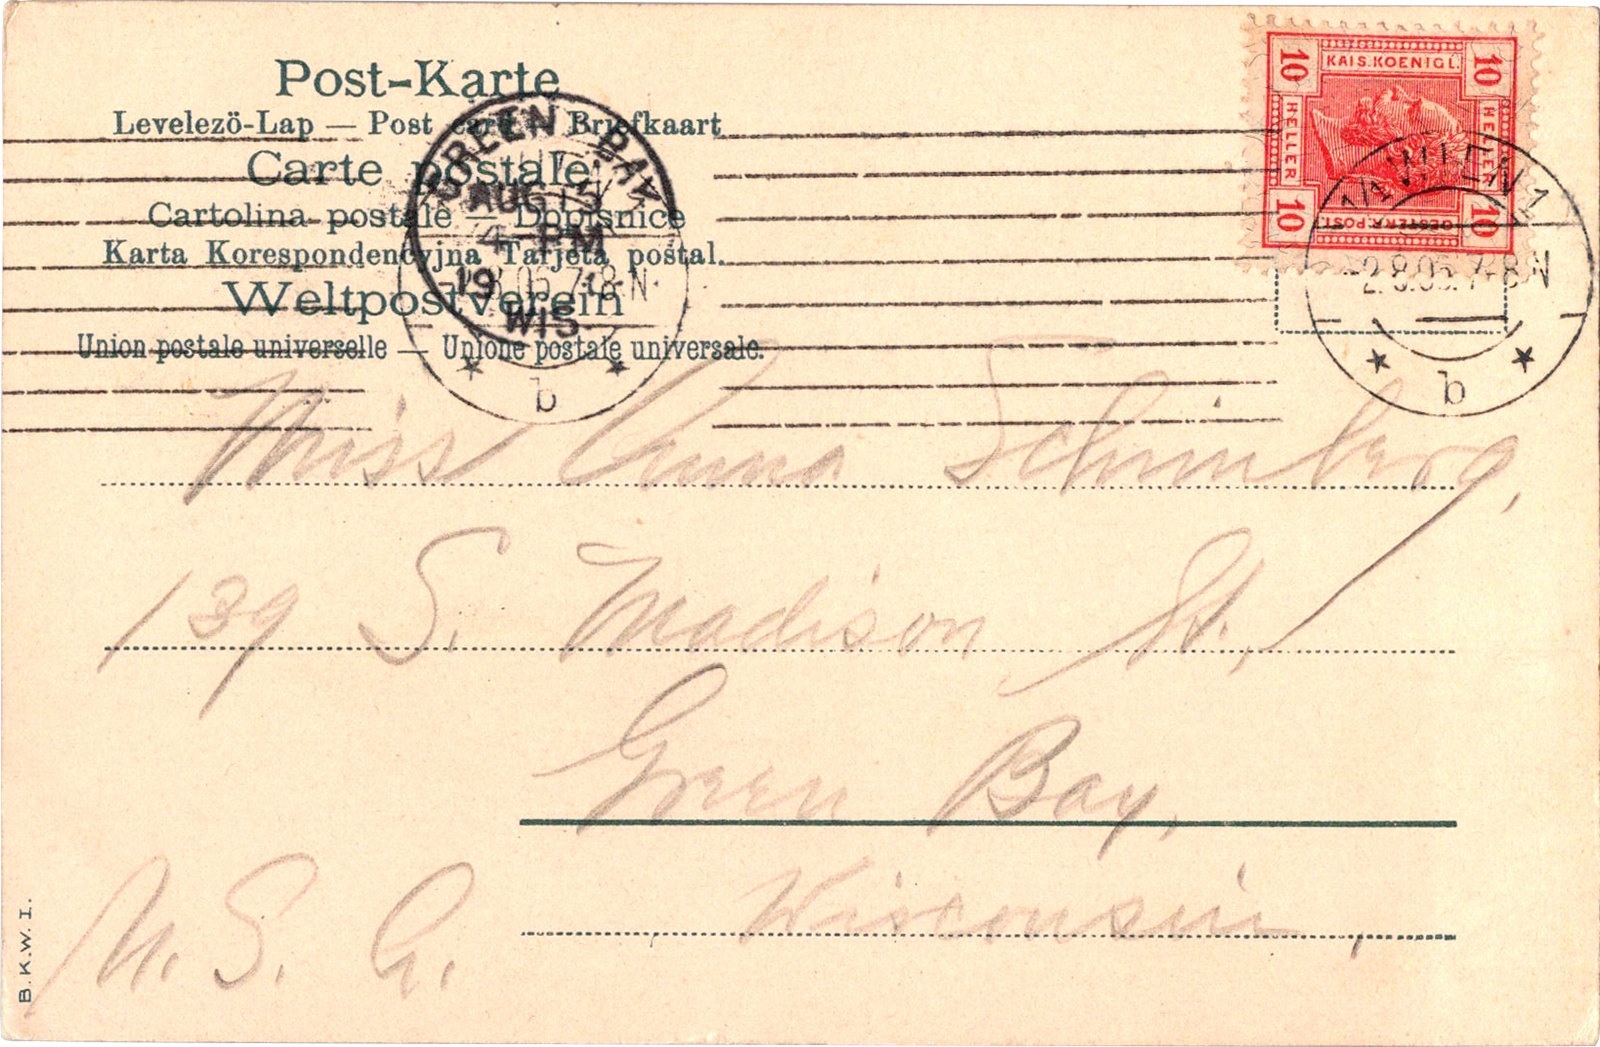 Post-Karte
Levelezö-Lap — Post card — Briefkaart
Carte postale
Cartolina postale — Dopisnice
Karta Korespondencyjna Tarjeta postal.
Weltpostverein
Union postale universelle — Unione postale universale.
GREEN BAY
AUG 13
4 - PM
WIS.
05. 7-8 N
b
10 KAIS. KOENIGL. 10
HELLER HELLER
10 OESTERR. POST. 10
1/1 WIEN 1
2. 8. 05. 7-8 N
b
Miss Anna Schinberg,
139 S. Madison St.,
Green Bay,
Wisconsin,
U. S. A.
B. K. W. I.